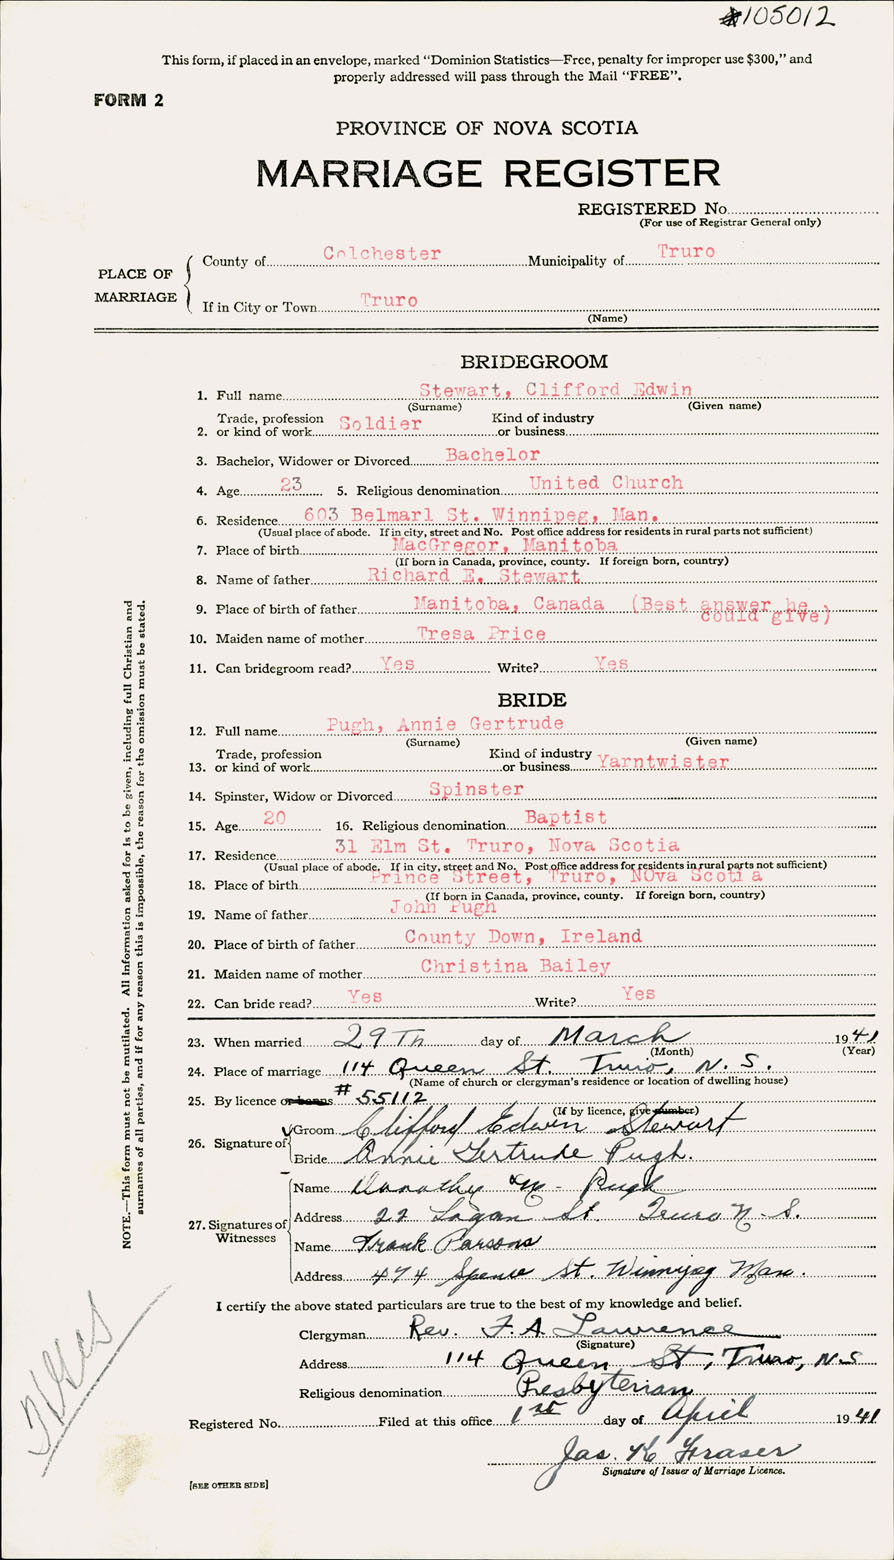 #105012
This form, if placed in an envelope, marked "Dominion Statistics—Free, penalty for improper use $300," and
properly addressed will pass through the Mail "FREE".
FORM 2
PROVINCE OF NOVA SCOTIA
MARRIAGE REGISTER
REGISTERED No.
(For use of Registrar General only)
PLACE OF MARRIAGE
County of Colchester Municipality of Truro
If in City or Town Truro
(Name)
BRIDEGROOM
1. Full name Stewart, Clifford Edwin
(Surname) (Given name)
Trade, profession Kind of industry
2. or kind of work Soldier or business
3. Bachelor, Widower or Divorced Bachelor
4. Age 23 5. Religious denomination United Church
6. Residence 603 Belmarl St. Winnipeg, Man.
(Usual place of abode. If in city, street and No. Post office address for residents in rural parts not sufficient)
7. Place of birth MacGregor, Manitoba
(If born in Canada, province, county. If foreign born, country)
8. Name of father Richard E. Stewart
9. Place of birth of father Manitoba, Canada (Best answer he
could give)
10. Maiden name of mother Tresa Price
11. Can bridegroom read? Yes Write? Yes
BRIDE
12. Full name Pugh, Annie Gertrude
(Surname) (Given name)
Trade, profession Kind of industry
13. or kind of work or business Yarntwister
14. Spinster, Widow or Divorced Spinster
15. Age 20 16. Religious denomination Baptist
17. Residence 31 Elm St. Truro, Nova Scotia
(Usual place of abode. If in city, street and No. Post office address for residents in rural parts not sufficient)
18. Place of birth Prince Street, Truro, NOva Scoti a
(If born in Canada, province, county. If foreign born, country)
19. Name of father John Pugh
20. Place of birth of father County Down, Ireland
21. Maiden name of mother Christina Bailey
22. Can bride read? Yes Write? Yes
23. When married 29Th day of March 1941
(Month) (Year)
24. Place of marriage 114 Queen St. Truro, N.S.
(Name of church or clergyman's residence or location of dwelling house)
25. By licence or banns #55112
(If by licence, give number)
26. Signature of
Groom Clifford Edwin Stewart
Bride Annie Gertrude Pugh.
27. Signatures of Witnesses
Name Dorothy M. Pugh
Address 22 Logan St. Truro N.S.
Name Frank Parsons
Address 474 Spence St. Winnipeg Man.
I certify the above stated particulars are true to the best of my knowledge and belief.
Clergyman Rev. F. A. Lawrence
(Signature)
Address 114 Queen St, Truro, N.S
Religious denomination Presbyterian
Registered No. Filed at this office 1st day of April 1941
Jas. K Fraser
Signature of Issuer of Marriage Licence.
[SEE OTHER SIDE]
NOTE.—This form must not be mutilated. All Information asked for is to be given, including full Christian and
surnames of all parties, and if for any reason this is impossible, the reason for the omission must be stated.